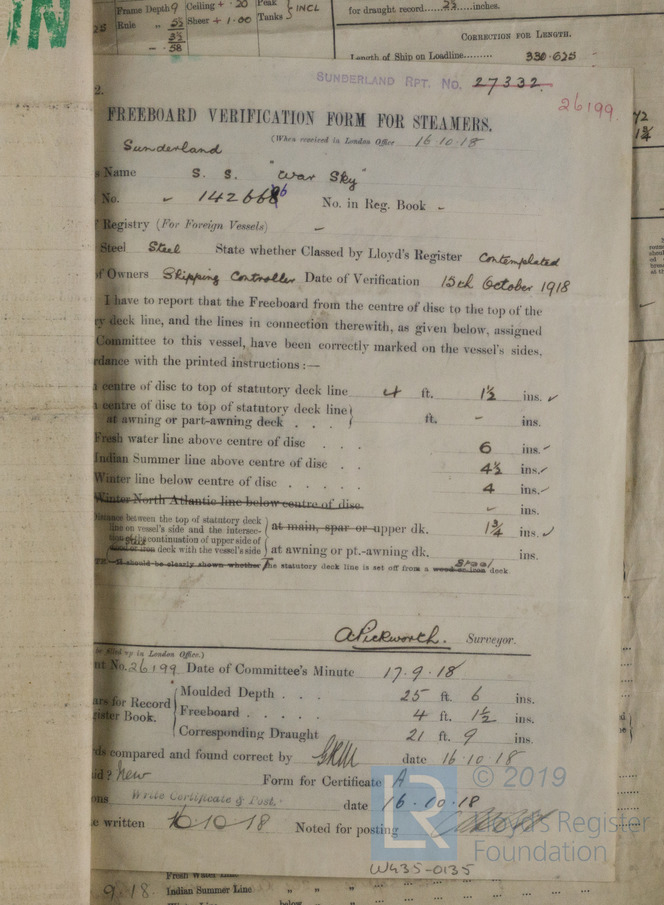 Frame Depth 9
Rule " 5½
3½
- .58
Ceiling + .20
Sheer + 1.00
Peak
Tanks } INCL
for draught record.....23.....inches.
CORRECTION FOR LENGTH.
Length of Ship on Loadline......... 330.625
SUNDERLAND RPT. No. 27332.
26199.
2.
FREEBOARD VERIFICATION FORM FOR STEAMERS.
(When received in London Office 16.10.18
Sunderland
s Name S. S. "War Sky"
No. - 142668 b No. in Reg. Book -
f Registry (For Foreign Vessels) -
Steel Steel State whether Classed by Lloyd's Register Contemplated
of Owners Shipping Controller Date of Verification 15th October 1918
I have to report that the Freeboard from the centre of disc to the top of the
ry deck line, and the lines in connection therewith, as given below, assigned
Committee to this vessel, have been correctly marked on the vessel's sides,
rdance with the printed instructions :—
centre of disc to top of statutory deck line 4 ft. 1½ ins.
centre of disc to top of statutory deck line
at awning or part-awning deck . . . } ft. - ins.
Fresh water line above centre of disc . . 6 ins.
Indian Summer line above centre of disc . . 4½ ins.
Winter line below centre of disc . . . . . 4 ins.
Winter North Atlantic line below centre of disc. - ins.
Distance between the top of statutory deck
line on vessel's side and the intersec-
tion of the continuation of upper side of
Steel
wood or iron deck with the vessel's side
at main, spar or upper dk. 1¾ ins.
at awning or pt.-awning dk. ins.
It should be clearly shewn whether The statutory deck line is set off from a wood or iron Steel deck.
A Pickworth. Surveyor.
be filled up in London Office.)
nt No. 26199 Date of Committee's Minute 17.9.18
ars for Record
gister Book.
Moulded Depth . . . 25 ft. 6 ins.
Freeboard . . . . . 4 ft. 1½ ins.
Corresponding Draught 21 ft. 9 ins.
ds compared and found correct by date 16.10.18
id? New Form for Certificate A
ons Write Certificate & Post. date 16.10.18
e written 16.10.18 Noted for posting
© 2019
LR
Lloyd's Register
Foundation
W435-0135
9.18.
Fresh Water Line
Indian Summer Line " " "
below